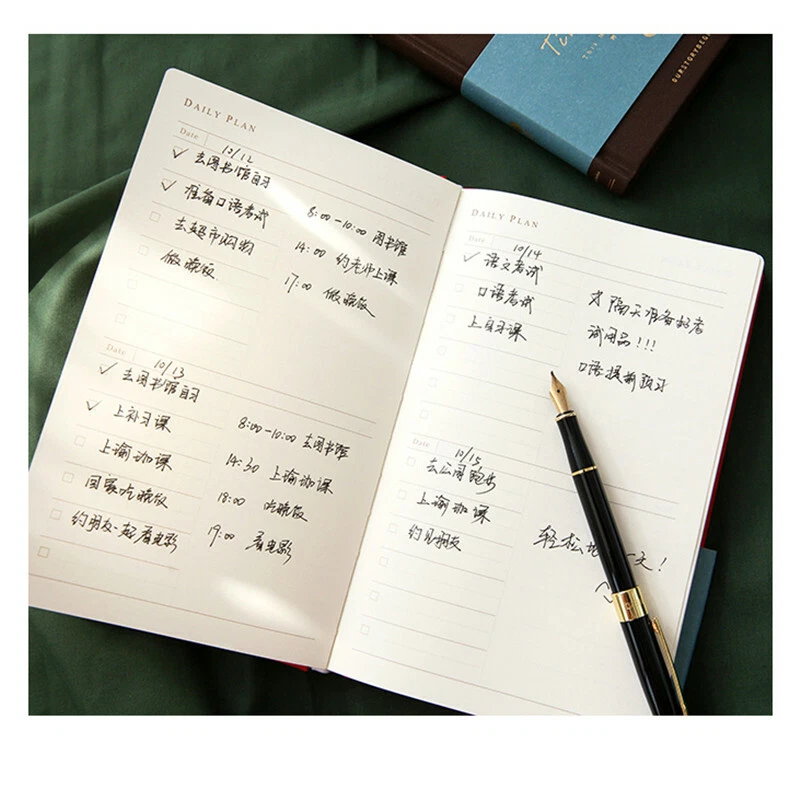 DAILY PLAN
Date
10/12
去图书馆自习
准备口语考试
去超市购物
做晚饭
8:00-10:00 图书馆
14:00 约老师上课
17:00 做晚饭
Date
10/13
去图书馆自习
上补习课
上瑜伽课
回家吃晚饭
约朋友一起看电影
8:00-10:00 去图书馆
14:30 上瑜伽课
18:00 吃晚饭
19:00 看电影
DAILY PLAN
Date
10/14
语文考试
口语考试
上自习课
隔天准备好考
试用品!!!
口语提前预习
Date
10/15
去公园跑步
上瑜伽课
约见朋友
轻松 一天!
OURSTORYBEGA